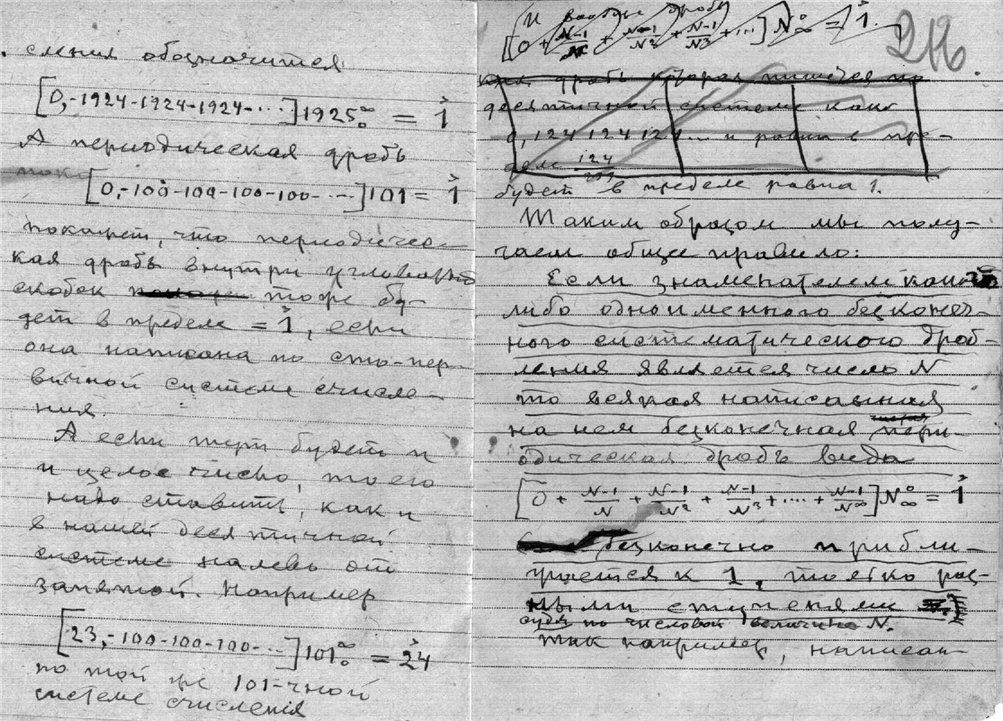 ения обозначится
[0,-1924-1924-1924-...]1925₀^∞ = 1̌
А периодическая дробь
[0,-100-100-100-100-...]101 = 1̌
покажет, что периодичес-
кая дробь внутри угловатой
скобок тоже бу-
дет в пределе = 1̌, если
она написана по сто-пер-
вичной системе счисле-
ния.
А если тут будет и
и целое число, то его
надо ставить, как и
в нашей десятичной
системе налево от
запятой. Например
[23,-100-100-100-...]101₀^∞ = 2̌4
по той же 101-чной
системе счисленія
216
И вообще дробь
[0 + N-1/N + N-1/N² + N-1/N³ + ...] N₀^∞ = 1̌.
кая дробь которая пишется по
десятичной системе как
0,124 124 124... и равна в пре-
деле 124
будет в пределе равна 1.
Таким образом мы полу-
чаем общее правило:
Если знаменателем какого
либо одноименного безконеч-
ного систематического дроб-
ления является число N
то всякая написанная
на нем безконечная пери-
одическая дробь вида
[0 + N-1/N + N-1/N² + N-1/N³ + .... + N-1/N^∞] N_∞^0 = 1̌
безконечно прибли-
жается к 1, только раз-
ными ступенями
судя по числовой величине N.
так например, написан-